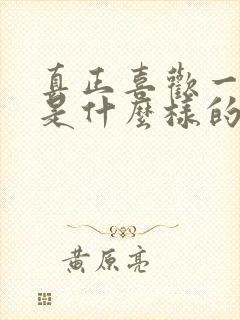 真正喜歡一
是什麼樣的
黃原亮